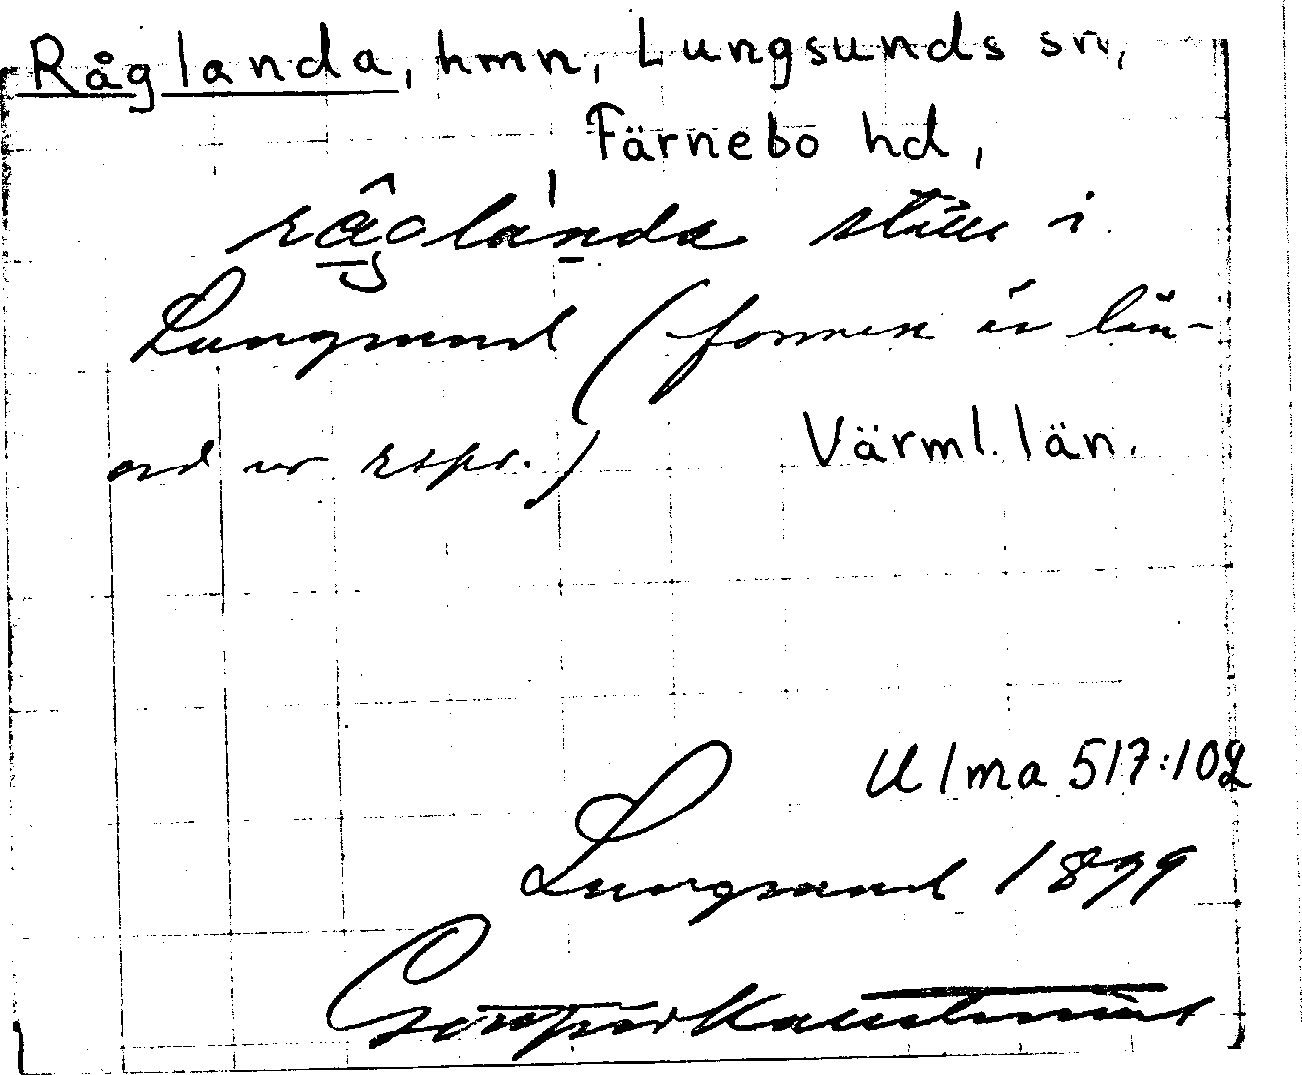 Råglanda, hmn, Lungsunds sn,
Färnebo hd,
råglanda ställe i
Lungsund (formen är lån-
ord ur rspr.)
Värml. län.
Ulma 517:102
Lungsund 1899